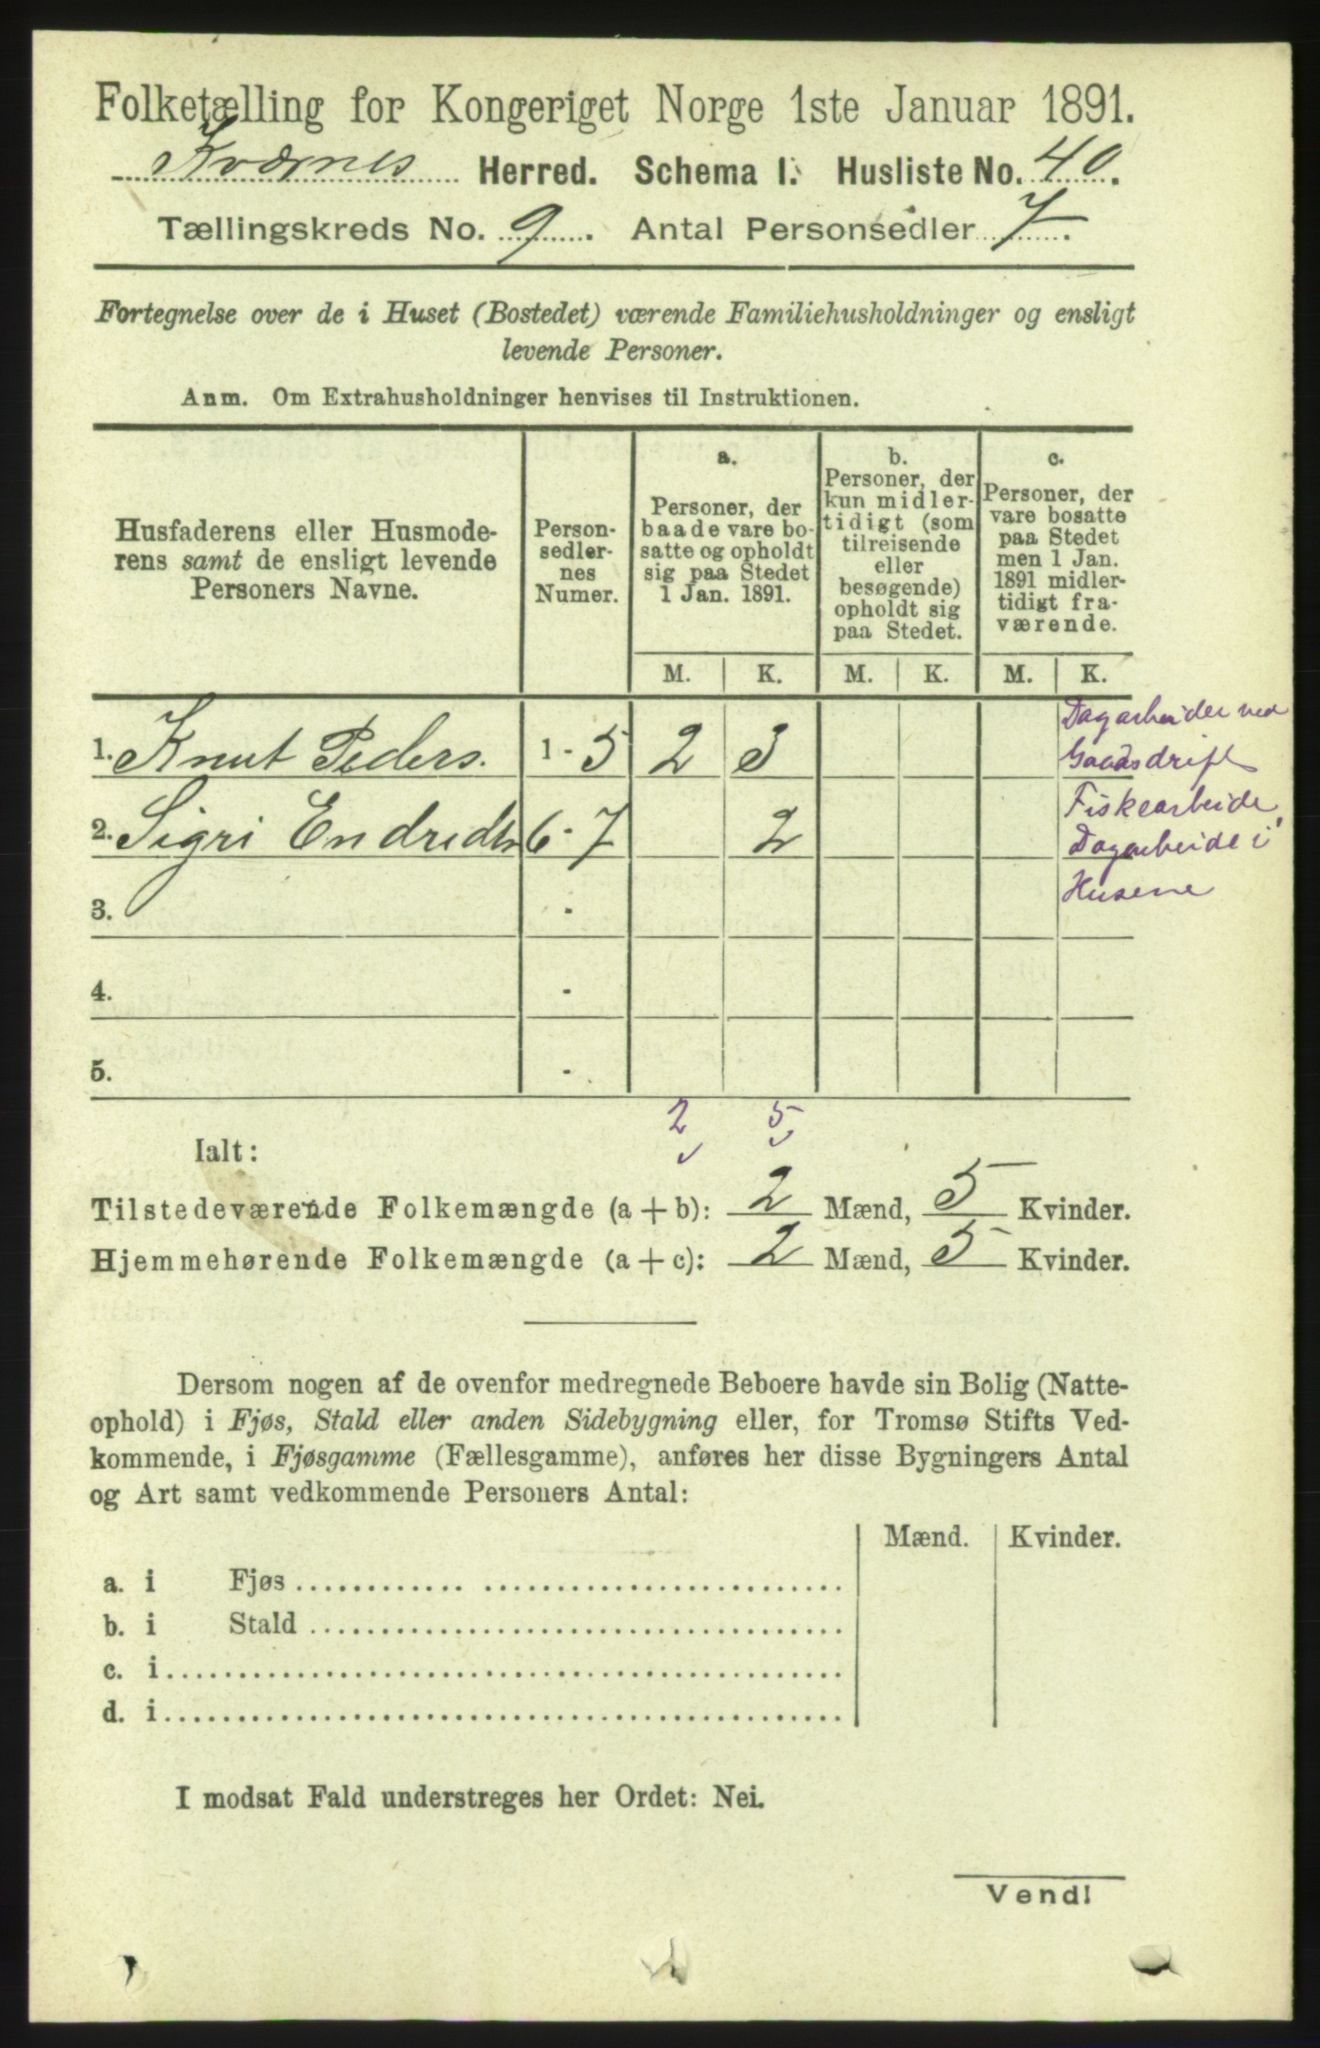 Folketælling for Kongeriget Norge 1ste Januar 1891.
Kværnes Herred. Schema I. Husliste No. 40.
Tællingskreds No. 9. Antal Personsedler 7.
Fortegnelse over de i Huset (Bostedet) værende Familiehusholdninger og ensligt
levende Personer.
Anm. Om Extrahusholdninger henvises til Instruktionen.
Husfaderens eller Husmode-
rens samt de ensligt levende
Personers Navne.
Person-
sedler-
nes
Numer.
a.
Personer, der
baade vare bo-
satte og opholdt
sig paa Stedet
1 Jan. 1891.
b.
Personer, der
kun midler-
tidigt (som
tilreisende
eller
besøgende)
opholdt sig
paa Stedet.
c.
Personer, der
vare bosatte
paa Stedet
men 1 Jan.
1891 midler-
tidigt fra-
værende.
M. K. M. K. M. K.
1. Knut Peders. 1 - 5 2 3
Dagarbeider ved
Gaadsdrift
2. Sigri Endredtr 6 - 7 2
Fiskearbeide,
Dagarbeide i
Husene
3. -
4. -
5. -
2 5
Ialt:
Tilstedeværende Folkemængde (a + b): 2 Mænd, 5 Kvinder.
Hjemmehørende Folkemængde (a + c): 2 Mænd, 5 Kvinder.
Dersom nogen af de ovenfor medregnede Beboere havde sin Bolig (Natte-
ophold) i Fjøs, Stald eller anden Sidebygning eller, for Tromsø Stifts Ved-
kommende, i Fjøsgamme (Fællesgamme), anføres her disse Bygningers Antal
og Art samt vedkommende Personers Antal:
Mænd. Kvinder.
a. i Fjøs
b. i Stald
c. i
d. i
I modsat Fald understreges her Ordet: Nei.
Vend!